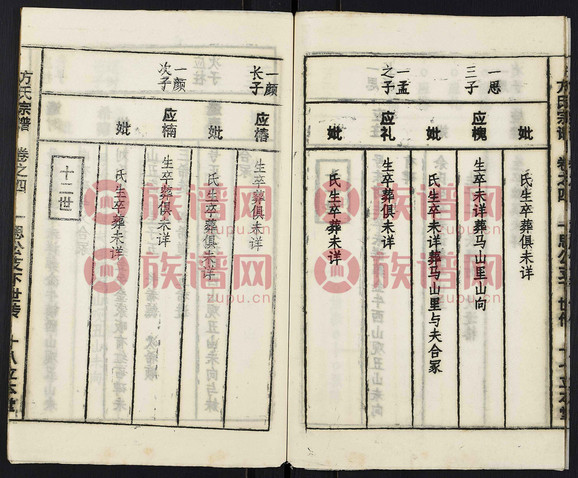 妣
氏生卒葬俱未详
一思
三子
应槐
生卒未详葬马山里山向
妣
氏生卒未详葬马山里与夫合冢
一孟
之子
应礼
生卒葬俱未详
妣
氏生卒葬未详
一颜
长子
应㯋
生卒葬俱未详
妣
氏生卒葬俱未详
一颜
次子
应楠
生卒葬俱未详
妣
氏生卒葬未详
十二世
方氏宗谱 卷之四 一思公支下世传 十八 立本堂
族谱网
zupu.cn
族谱网
zupu.cn
族谱网
zupu.cn
族谱网
zupu.cn